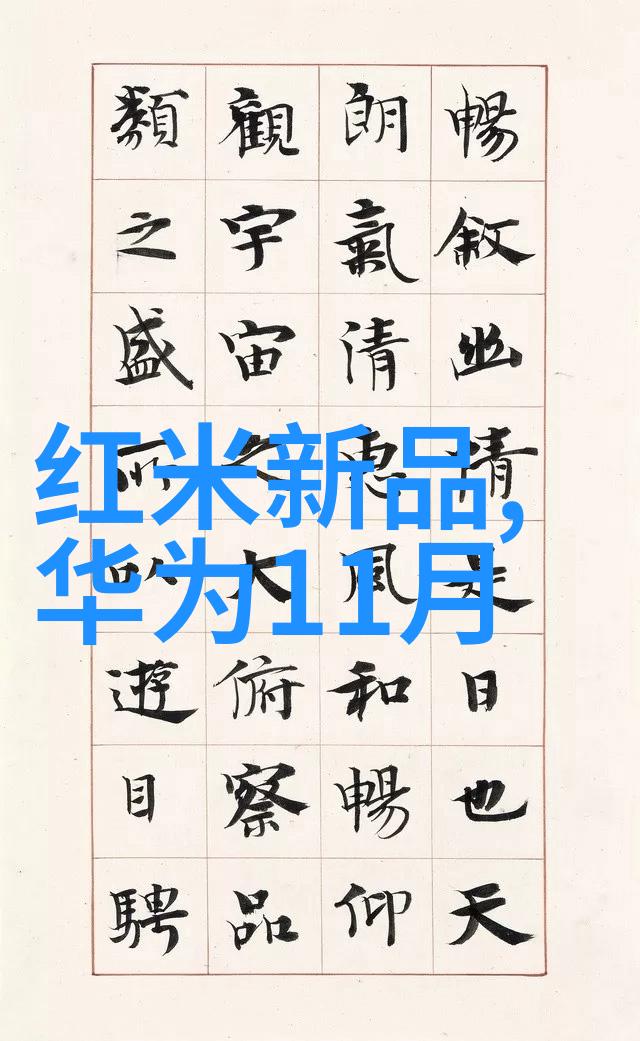 暢敘幽情是日也天
朗氣清惠風和暢仰
觀宇宙之大俯察品
類之盛所以遊目騁
红米新品,
华为11月